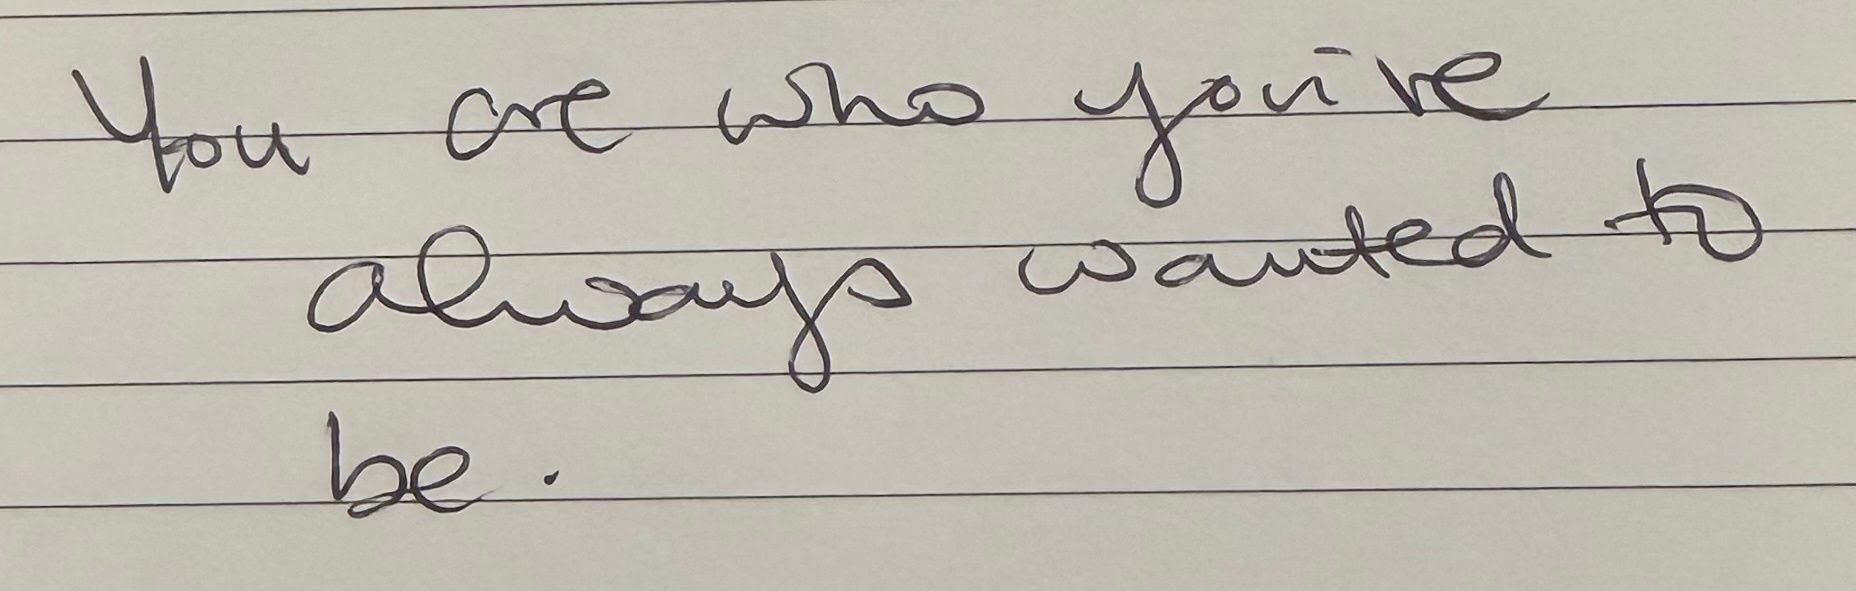 You are who you've
always wanted to
be.